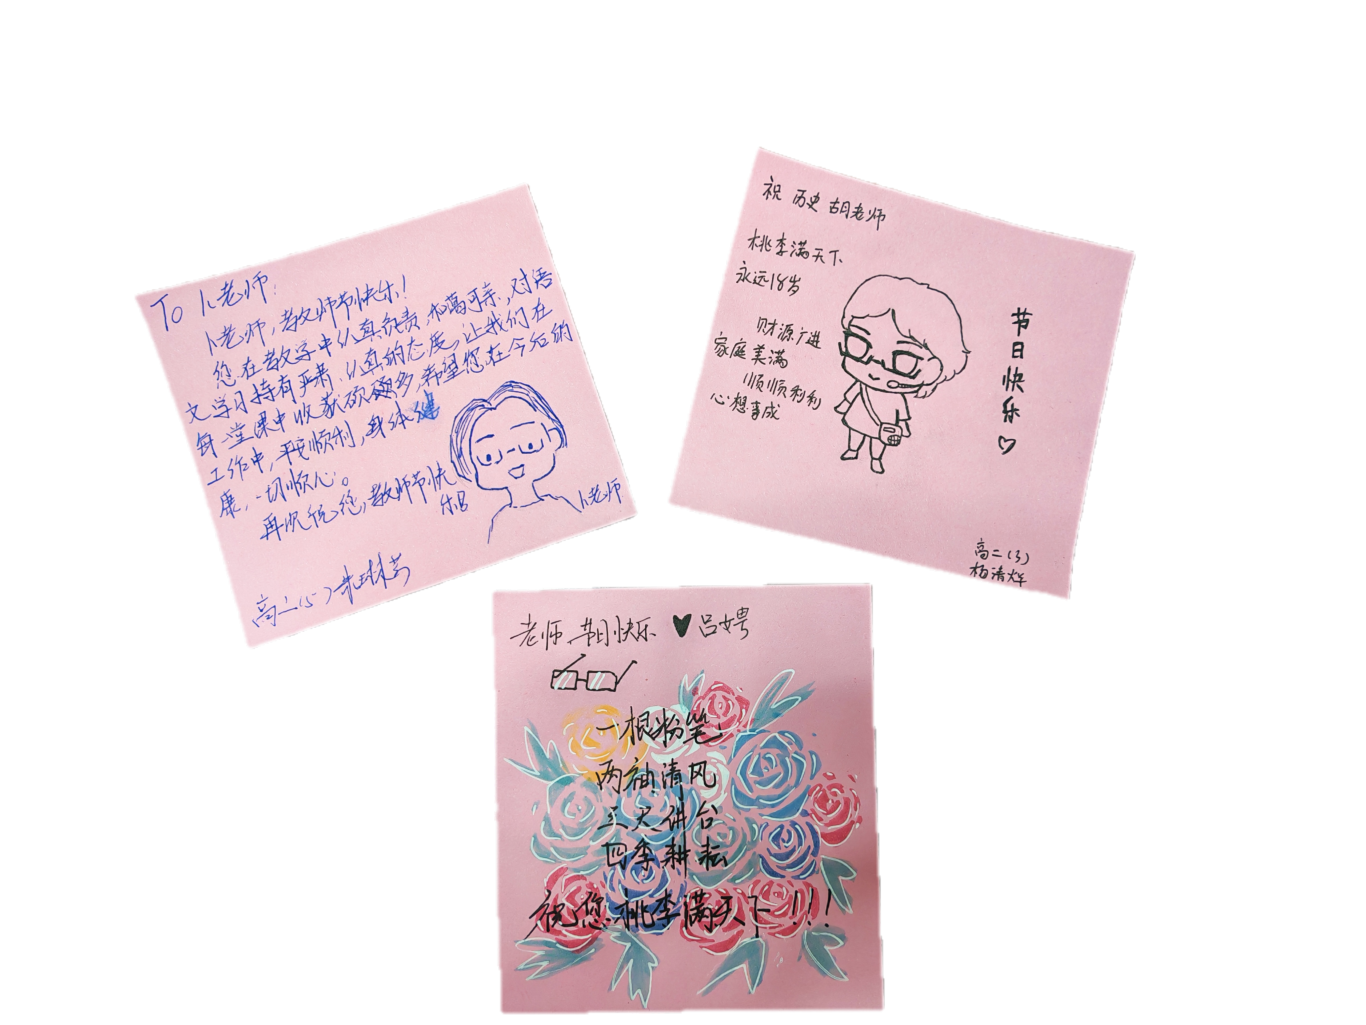 To 卜老师:
卜老师,教师节快乐!
您在教学中认真负责,和蔼可亲,对语
文学习持有严肃、认真的态度,让我们在
每一堂课中收获硕果多,希望您在今后的
工作中,平安顺利,身体健
康,一切顺心。
再次祝您,教师节快
乐
卜老师
高二(5)
祝 历史 胡老师
桃李满天下
永远18岁
财源广进
家庭美满
顺顺利利
心想事成
节日快乐♡
高二(3)
杨清烨
老师节日快乐 ♥吕娉
一根粉笔
两袖清风
三尺讲台
四季耕耘
祝您桃李满天下!!!